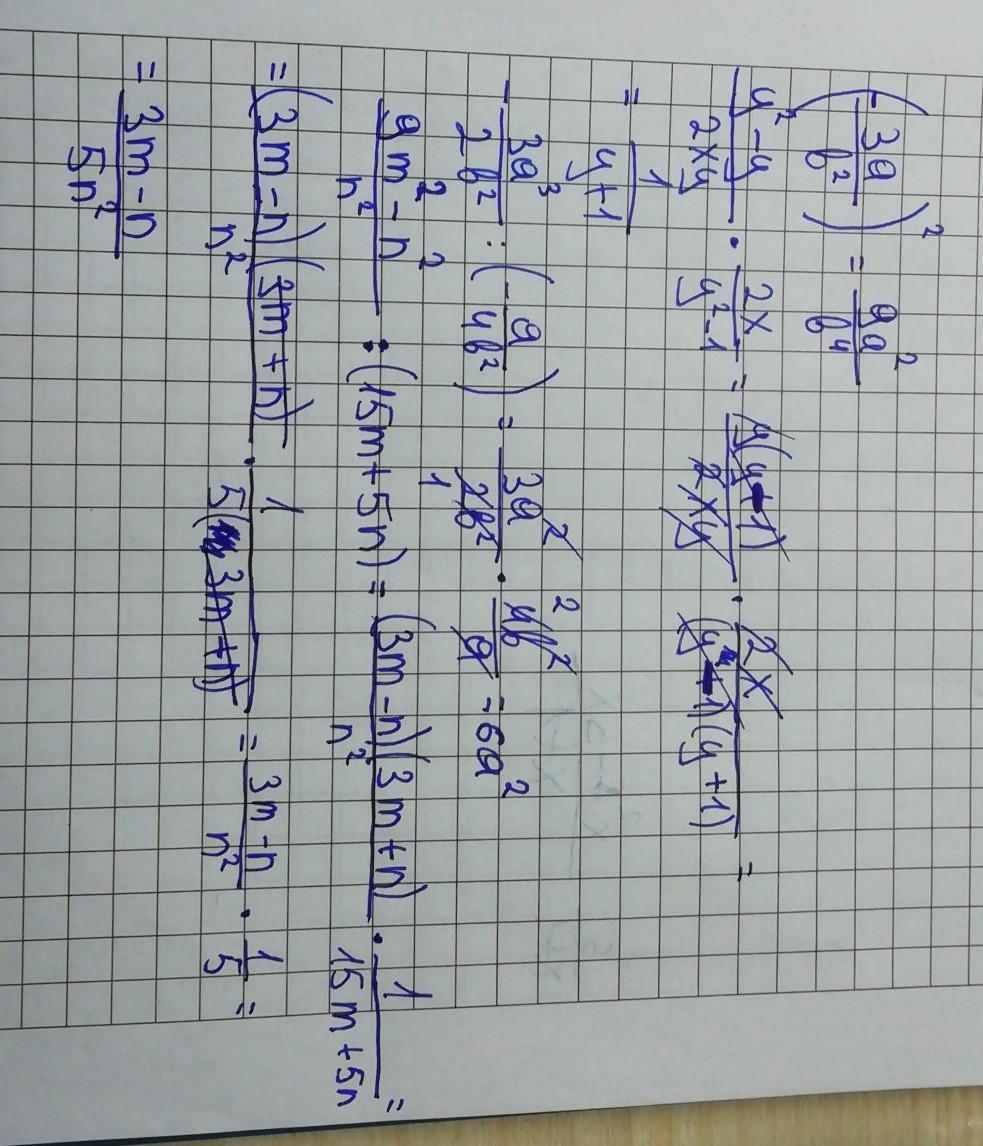 (-3a/b²)² = 9a²/b⁴
y²-y/2xy · 2x/y²-1 = y(y-1)/2xy · 2x/(y-1)(y+1) =
= 1/y+1
-3a³/2b² : (-a/4b²) = 3a²/2b² · 4b²/a = 6a²
1 2
9m²-n²/n² : (15m+5n) = (3m-n)(3m+n)/n² · 1/15m+5n =
= (3m-n)(3m+n)/n² · 1/5(3m+n) = 3m-n/n² · 1/5 =
= 3m-n/5n²